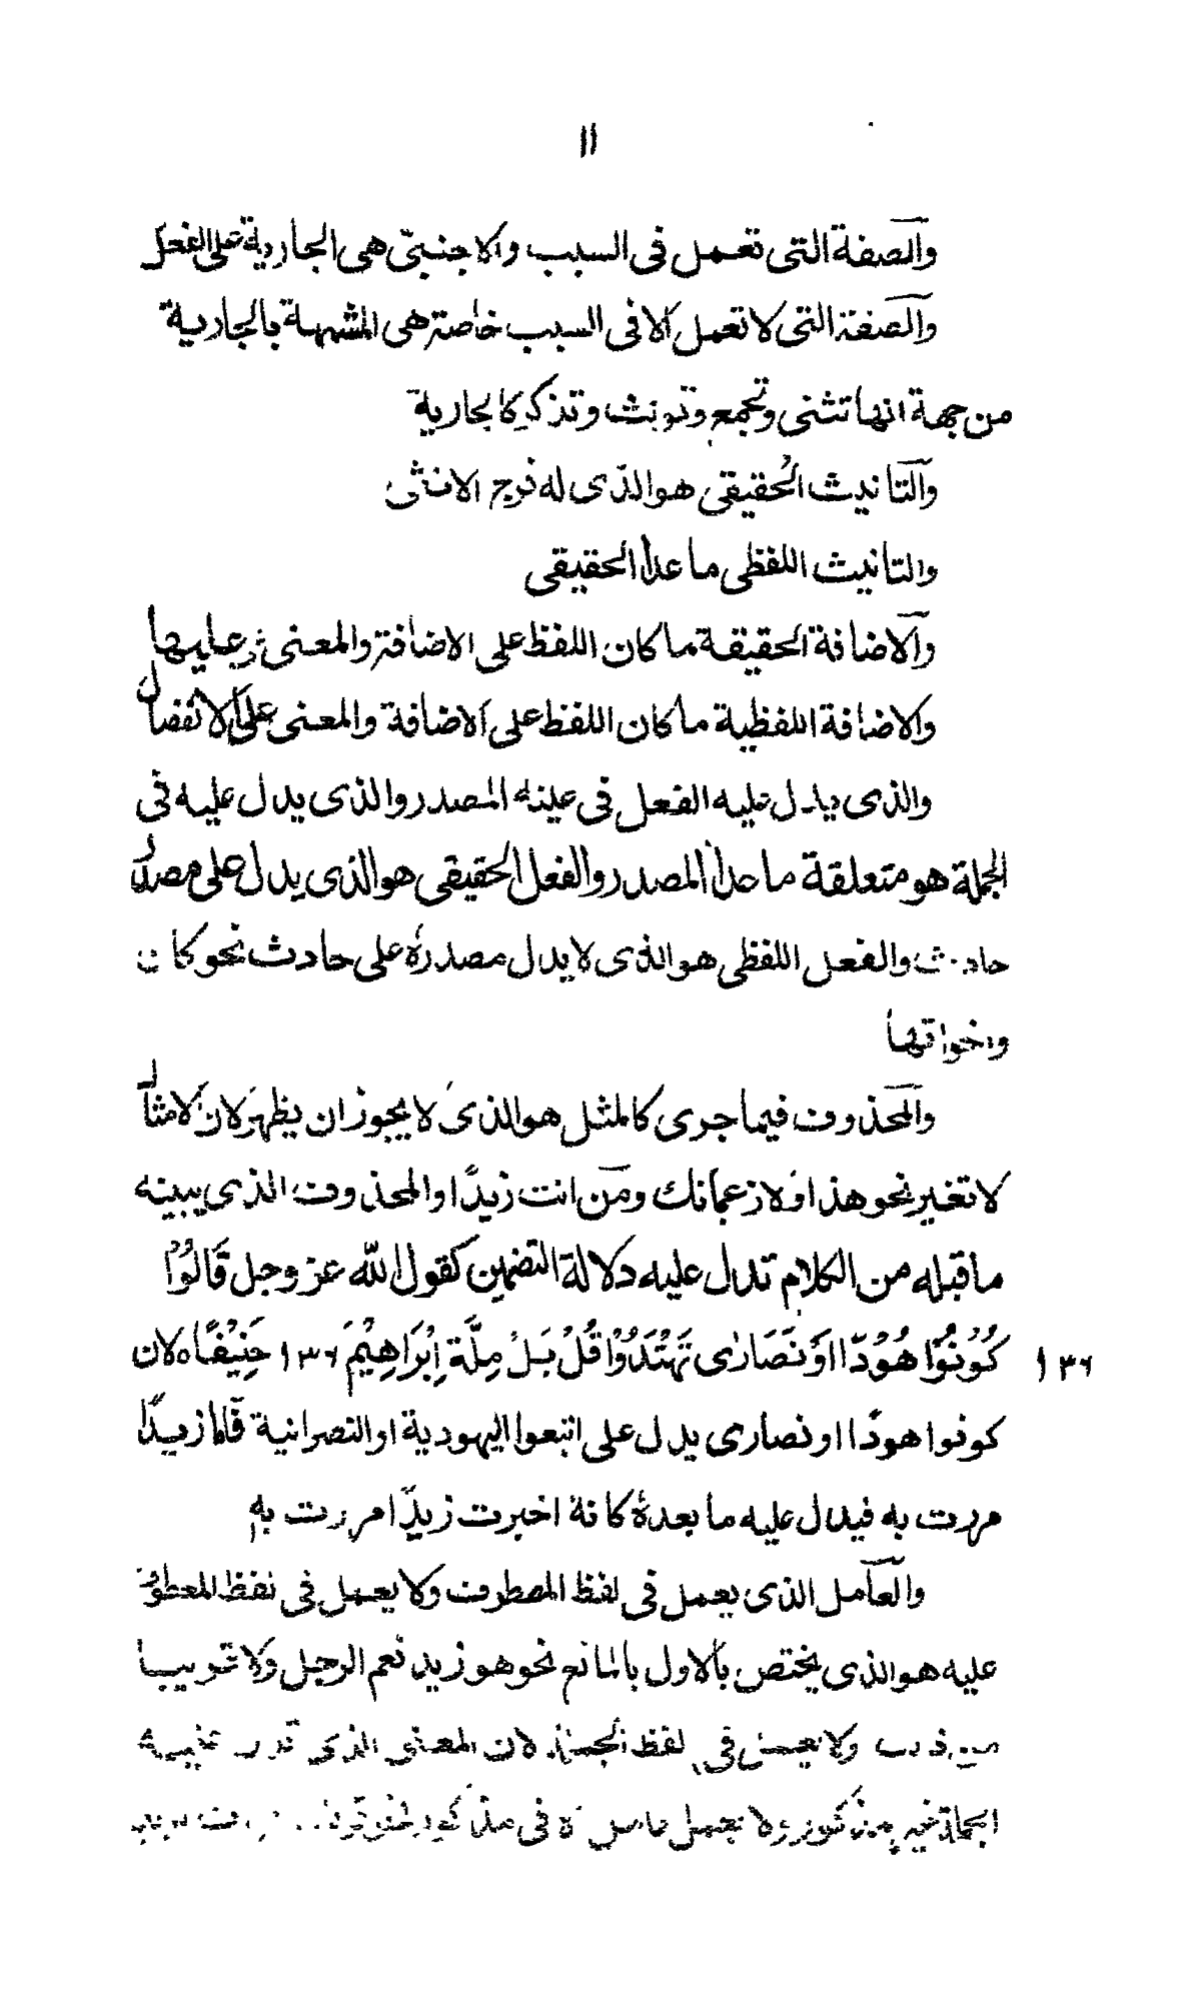 ١١
والصفة التى تعمل فى السبب والاجنبىّ هى الجارية على الفعل
والصفة التى لا تعمل الا فى السبب خاصة هى المشبهة بالجارية
من جهة انها تثنى وتجمع وتونث وتذكر كالجارية
والتانيث الحقيقى هو الذى له فرج الانثى
والتانيث اللفظى ما عدا الحقيقى
والاضافة الحقيقة ما كان اللفظ على الاضافة والمعنى عليها
والاضافة اللفظية ما كان اللفظ على الاضافة والمعنى على الانفصال
والذى يدل عليه الفعل فى عينه المصدر والذى يدل عليه فى
الجملة هو متعلقة ما حدا المصدر والفعل الحقيقى هو الذى يدل على مصدر
حادث والفعل اللفظى هو الذى لا يدل مصدره على حادث نحو كان
واخواتها
والمحذوف فيما جرى كالمثل هو الذى لا يجوز ان يظهر لان الامثال
لا تغير نحو هذا اولا زعمانك ومن انت زيدًا والمحذوف الذى يبينه
ما قبله من الكلام تدل عليه دلالة التضمين كقول الله عز وجل قَالُوْا
كُوْنُوْا هُوْدًا اَوْ نَصَارٰى تَهْتَدُوْا قُلْ بَلْ مِلَّةَ اِبْرَاهِيْمَ ١٣٦ حَنِيْفًا ه لان ١٣٦
كونوا هودًا او نصارى يدل على اتبعوا اليهودية او النصرانية فاما زيدًا
مررت به فيدل عليه ما بعده كانة اخبرت زيدًا مررت به
والعامل الذى يعمل فى لفظ المعطوف ولا يعمل فى لفظ المعطوف
عليه هو الذى يختص بالاول بالمانع نحو هو زيد نعم الرجل ولا قريبا
من ذلك ولا يعمل فى لفظ الجملة لان المعنى الذى
الجملة غير مذكور ولا يعمل فى